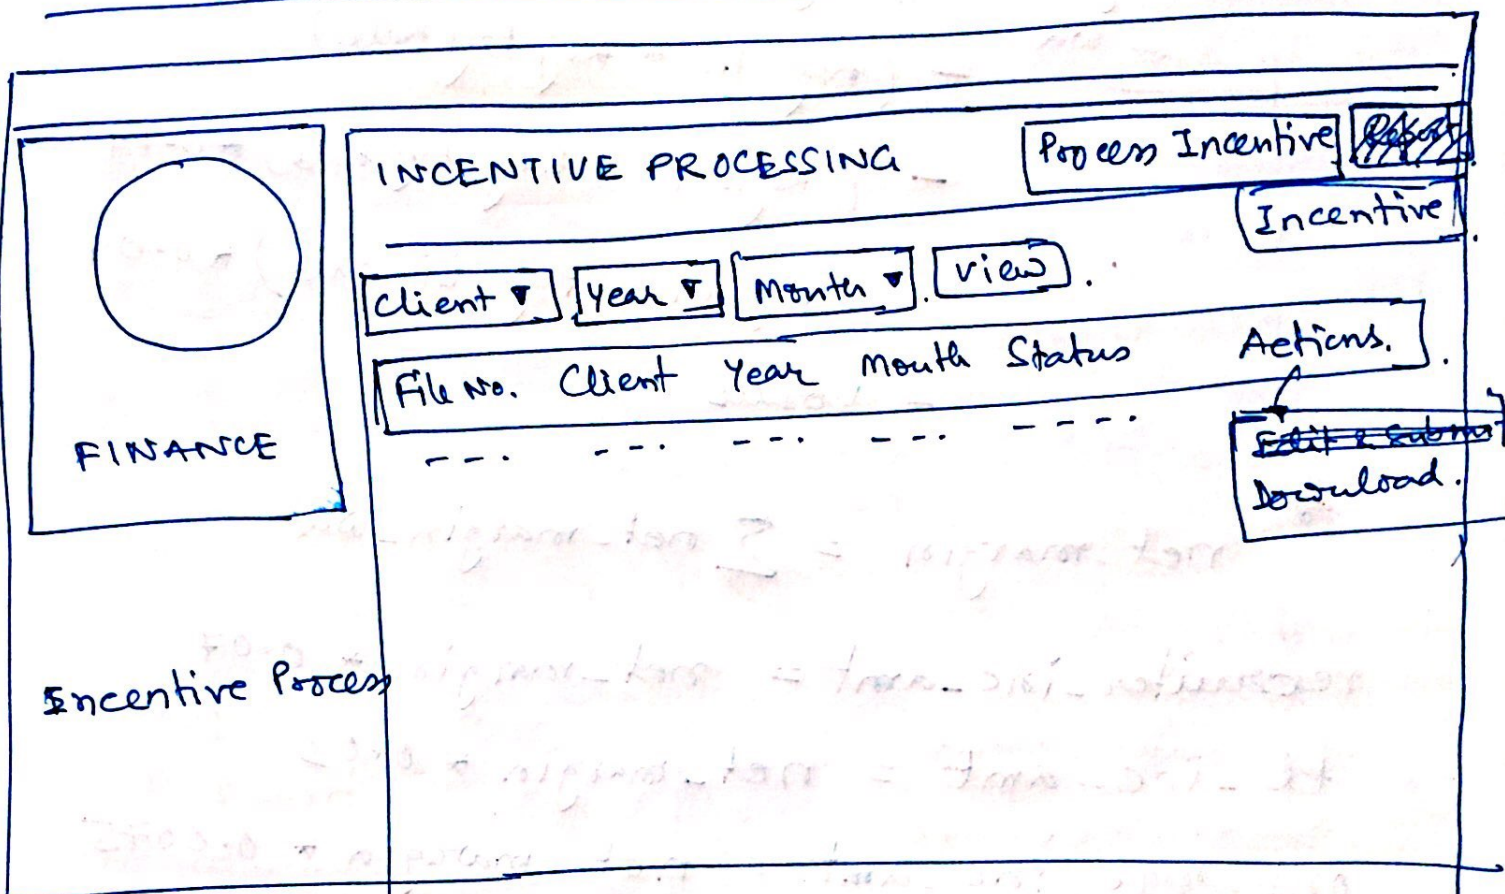 INCENTIVE PROCESSING
Process Incentive
Incentive
Client ▼ Year ▼ Month ▼ View
File No. Client Year Month Status Actions.
--- --- --- ----
Edit & Submit
Download.
FINANCE
Incentive Process